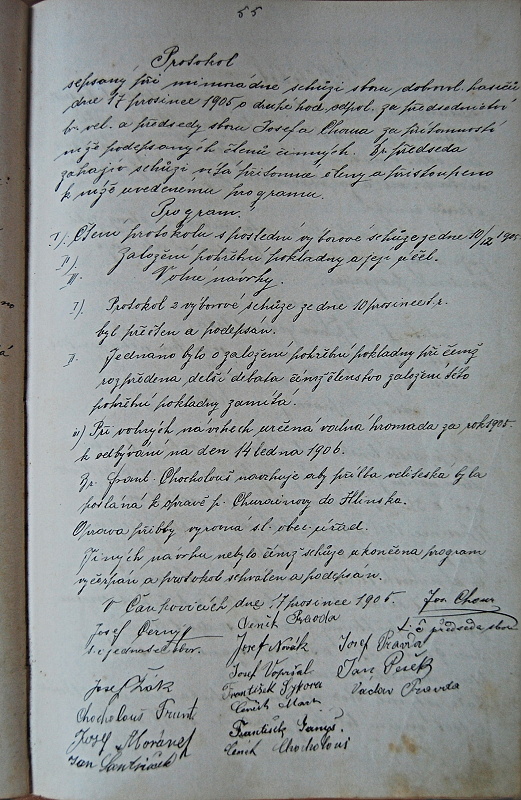 55
Protokol
sepsaný při mimořádné schůzi sboru dobrovol. hasičů
dne 17 prosince 1905 o druhé hod. odpol. za předsednictví
br. vel. a předsedy sboru Josefa Choura za přítomnosti
níže podepsaných členů činných. Br. předseda
zahájiv schůzi vítá přítomné členy a přistoupeno
k níže uvedenemu programu.
Program.
I). Čtení protokolu s poslední výborové schůze je dne 10/12 1905
II). Založení pohřební pokladny a její účel.
III. Volné návrhy.
I) Protokol z výborové schůze ze dne 10 prosince t r.
byl přečten a podepsán.
II. Jednáno bylo o založení pohřební pokladny při čemž
rozpředena delší debata čímž členstvo založení této
pohřební pokladny zamítá.
III) Při volných návrhech určena valná hromada za rok 1905.
k odbývání na den 14 ledna 1906.
Br. Frant. Chocholouš navrhuje aby přilba velitelska byla
poslána k opravě p. do Hlinska.
Oprava přilby vyrovná sl. obec. úřad.
Jiných navrhu nebylo čímž schůze ukončena program
vyčerpán a protokol schválen a podepsán.
V Čankovicích dne 17 prosince 1905.
Jos. Chour
t. č. předseda sboru
Josef Černý
t. č. jednatel sbor.
Čeněk Pravda
Josef Novák
Josef Pravda
Josef Vopršal
Jan Peřek
Josef Žák
František Sýkora
Václav Pravda
Chocholouš Frant.
Čeněk
Josef Morávek
František
Jan
Čeněk Chocholouš